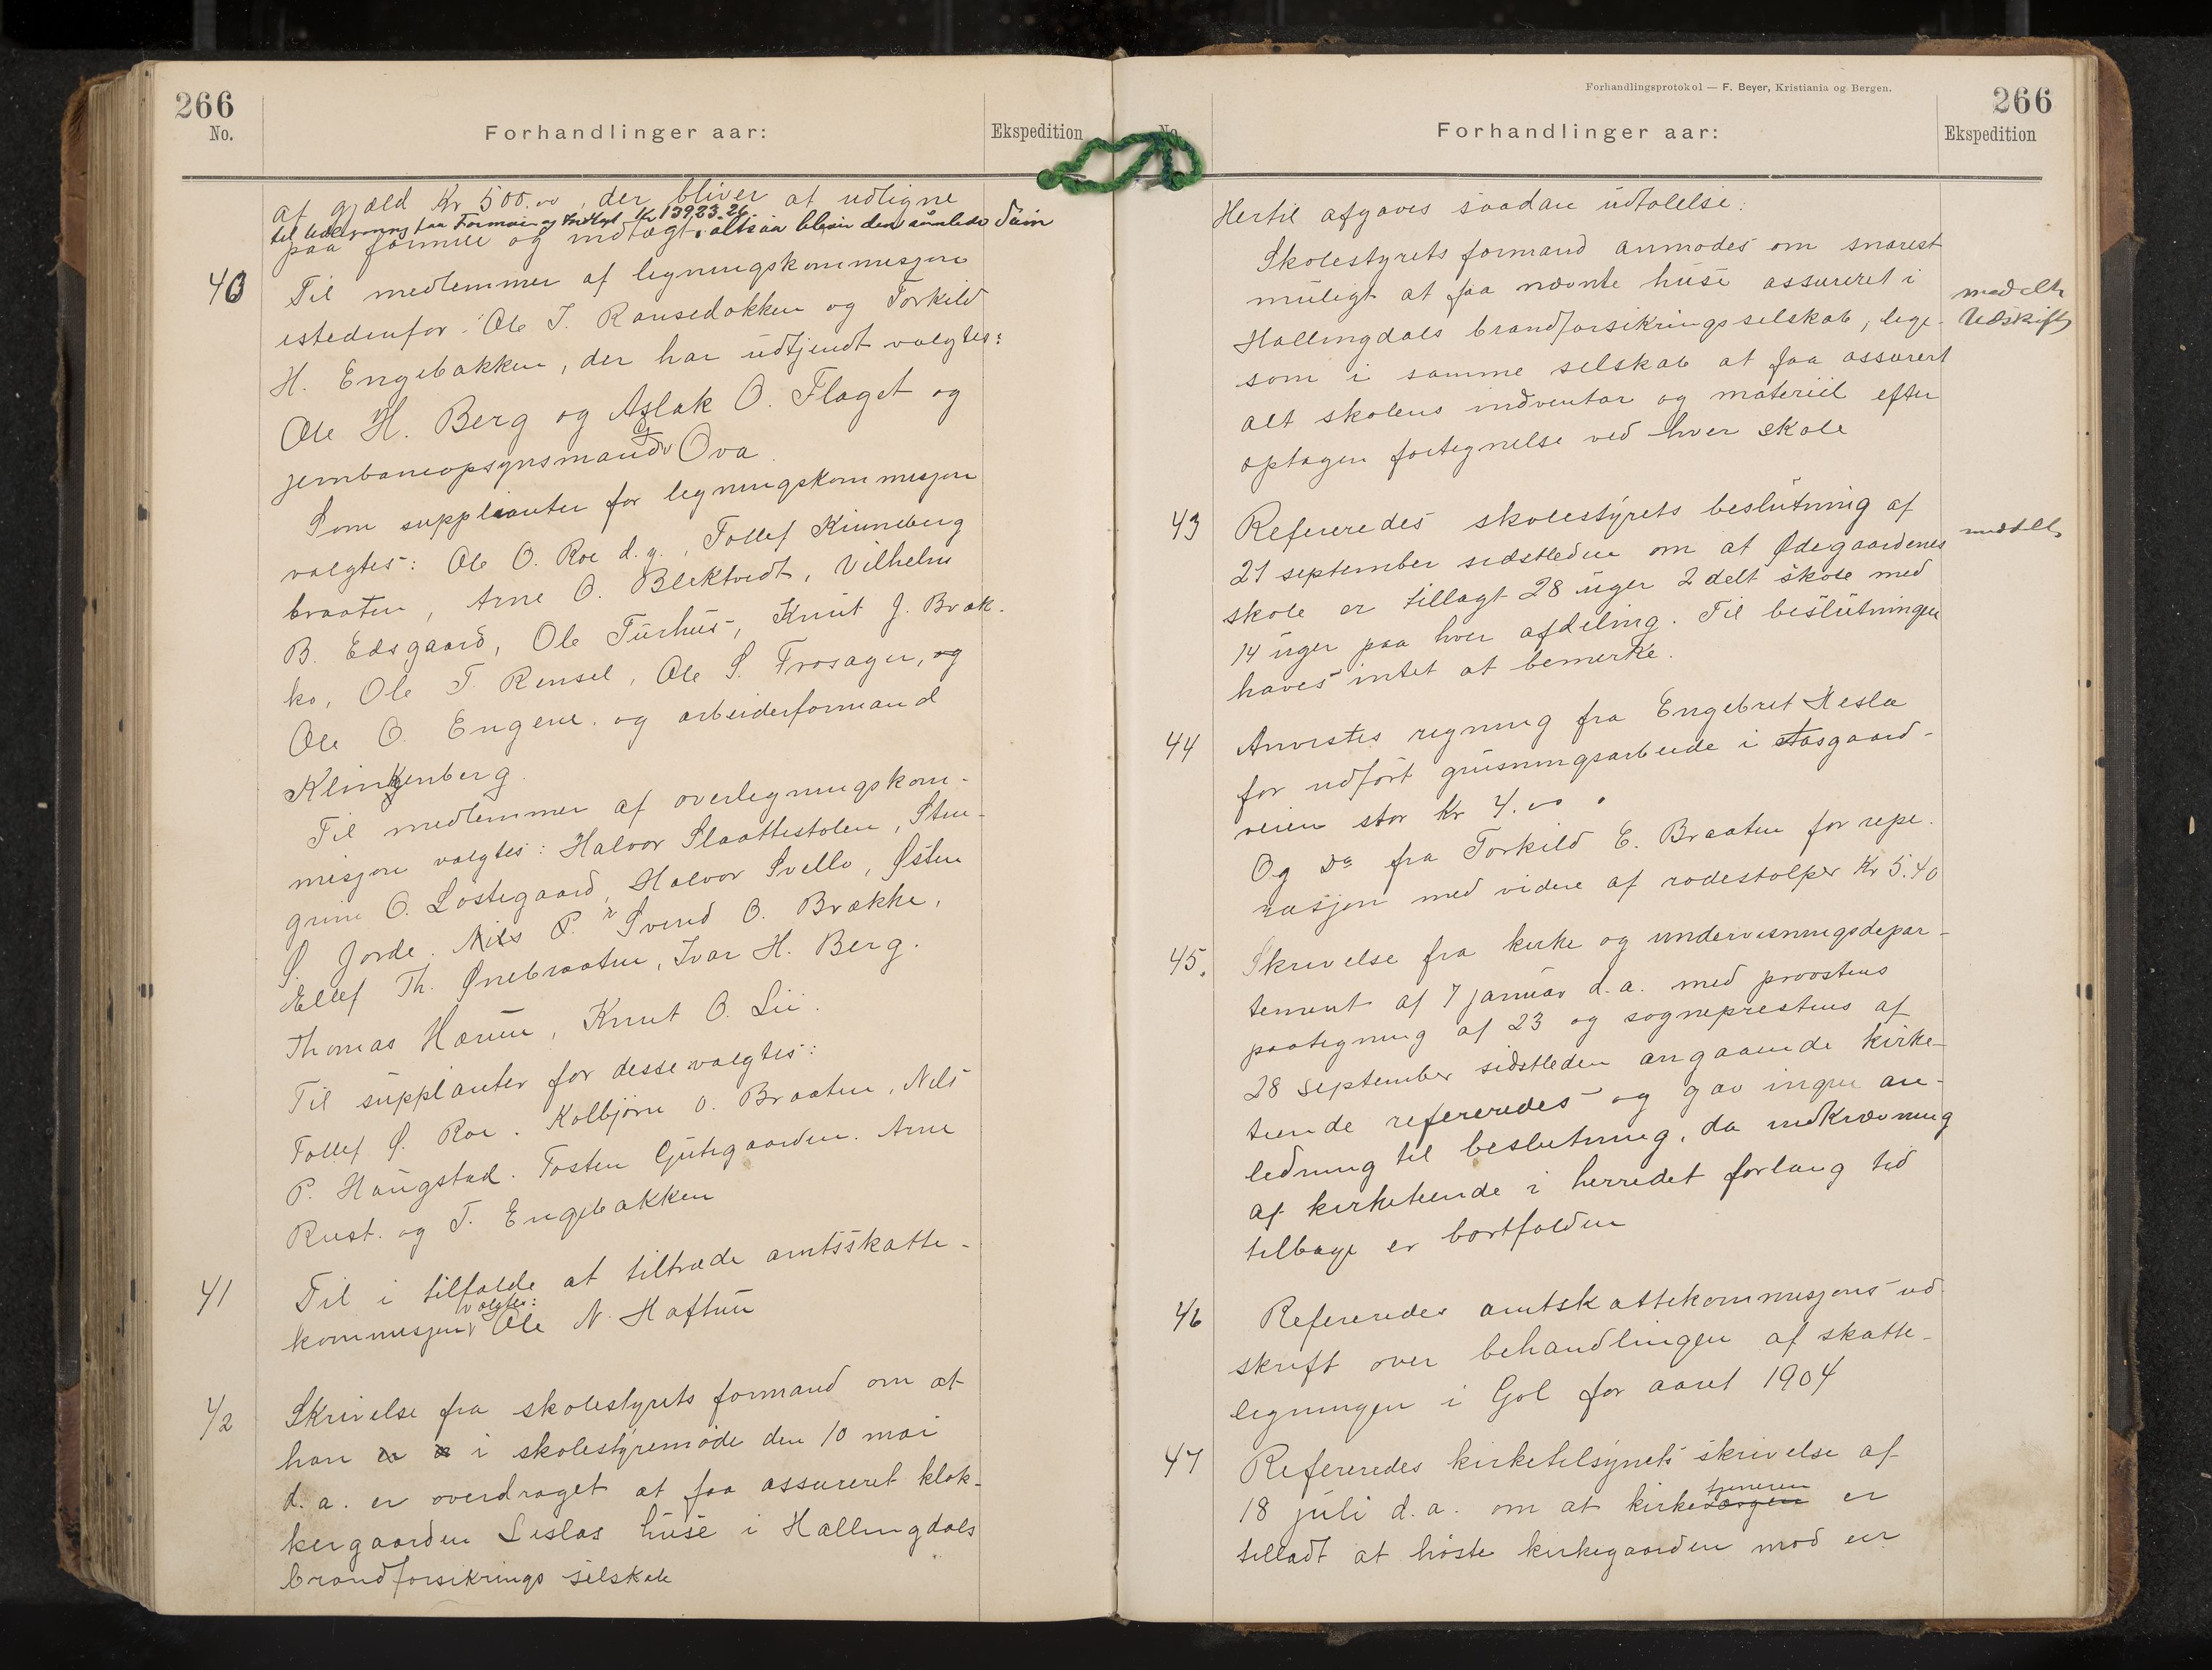 266
No.
Forhandlinger aar:
Ekspedition
af gjæld Kr 500.00, der bliver at udligne
paa formue og indtægt. altsaa bliver den samlede Sum
til Udligning paa Formue og Indtægt Kr 13923.26
40
Til medlemmer af legningskommisjon
istedenfor Ole T. Ransedokken og Torkild
H. Engebakken, der har udtjendt valgtes:
Ole H. Berg og Aslak O. Flaget og
jernbaneopsynsmand Ova.
Som supplianter for legningskommisjon
valgtes: Ole O. Roe d.y., Tollef Kinneberg
braaten, Arne O. Blektvedt, Vilhelm
B. Edsgaard, Ole Turhus, Knut J. Bræk-
ko, Ole T. Rensel, Ole S. Trosager, og
Ole O. Engene og arbeiderformand
Klinkenberg.
Til medlemmer af overlegningskom-
misjon valgtes: Halvor Slaattestølen, Sten-
grim O. Løstegaard, Halvor Svello, Østen
S. Jorde. Nils P. Svend O. Brække,
Ellef Th. Ønebraaten, Ivar H. Berg.
Thomas Hæsum, Knut O. Lii.
Til supplanter for desse valgtes:
Tollef S. Roe. Kolbjørn O. Braaten, Nils
P. Haugstad. Tosten Gjutegaarden. Arne
Rust. og T. Engebakken
41
Til i tilfælde at tiltræde amtsskatte-
kommisjon valgtes: Ole N. Haftun
42
Skrivelse fra skolestyrets formand om at
han i skolestyremøde den 10 mai
d.a. er overdraget at faa assureret klok-
kergaarden Lislas huse i Hallingdals
brandforsikrings selskab
Forhandlingsprotokol — F. Beyer, Kristiania og Bergen.
266
No.
Forhandlinger aar:
Ekspedition
Hertil afgaves saadan udtalelse:
Skolestyrets formand anmodes om snarest
muligt at faa nævnte huse assureret i
meddelt
Hallingdals brandforsikringsselskab, lige-
Udskift
som i samme selskab at faa assurert
alt skolens indventar og materiel efter
optagen fortegnelse ved hver skole
43
Refereredes skolestyrets beslutning af
meddelt
21 september sidstleden om at Ødegaardenes
skole er tillagt 28 uger 2 delt skole med
14 uger paa hver afdeling. Til beslutningen
haves intet at bemerke.
44
Anvistes regning fra Engebret Hesla
for udført grusningsarbeide i Aasgaard-
veien stor Kr 4.00.
Og Do fra Torkild E. Braaten for repe-
rasjon med videre af rodestolper Kr 5.40
45.
Skrivelse fra kirke og undervisningsdepar-
tement af 7 januar d.a. med proostens
paategning af 23 og sogneprestens af
28 september sidstleden angaaende kirke-
tiende refereredes og gav ingen an-
ledning til beslutning, da indkrævning
af kirketiende i herredet forlang tid
tilbage er bortfalden
46
Refereredes amtskattekommisjons ud-
skrift over behandlingen af skatte-
legningen i Gol for aaret 1904
47
Refereredes kirketilsynets skrivelse af
18 juli d.a. om at kirkeværgen tjeneren er
tilladt at høste kirkegaarden mod en